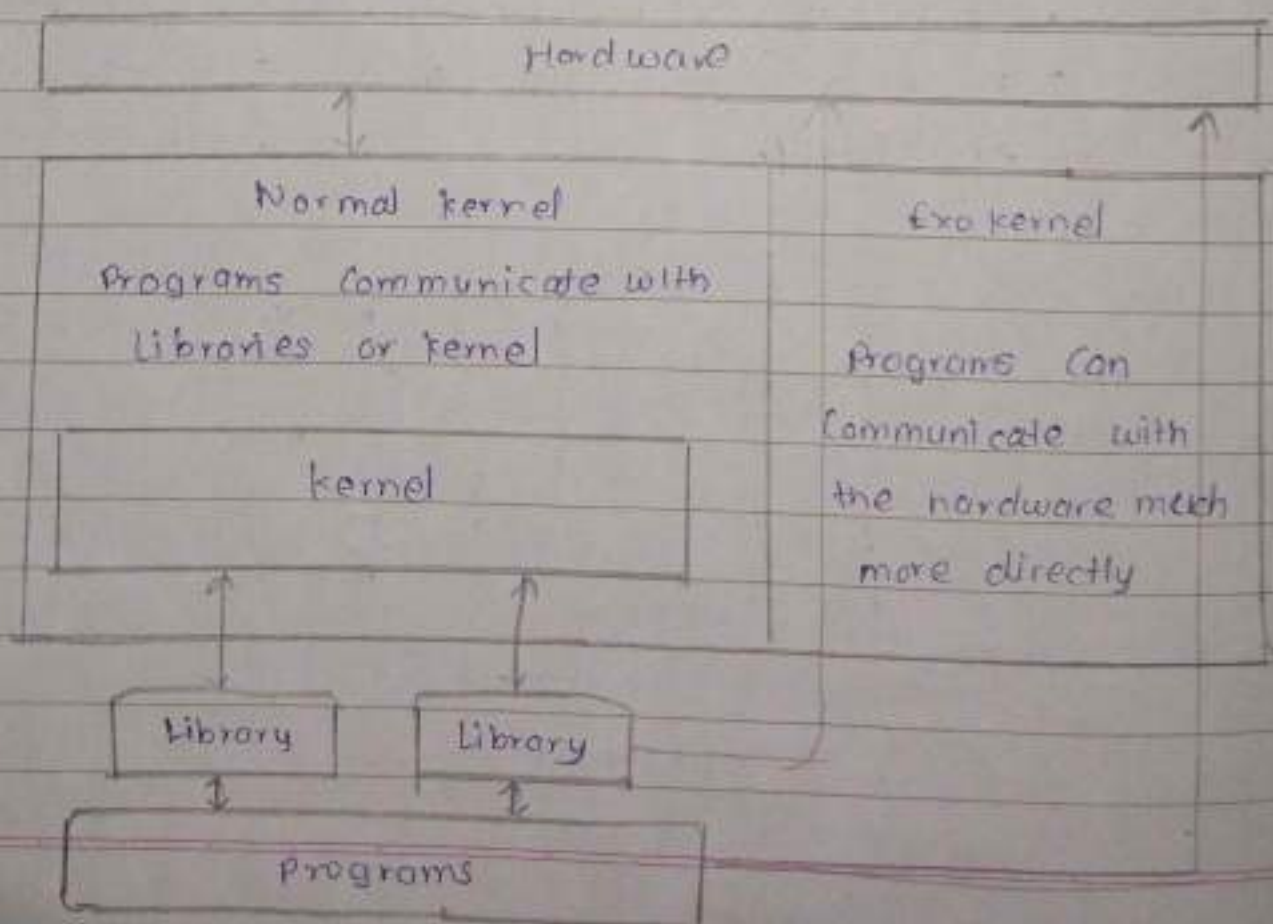 Hardware
Normal kernel
Programs Communicate with
Libraries or kernel
kernel
Exo kernel
Programs Can
Communicate with
the hardware much
more directly
Library
Library
Programs